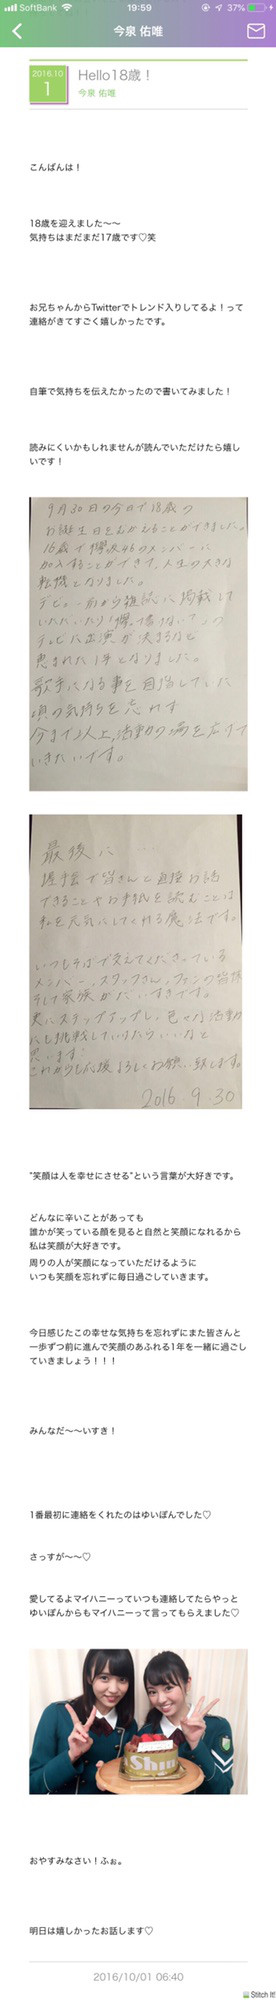 SoftBank 19:59 37%
今泉 佑唯
2016.10
1
Hello18歳！
今泉 佑唯
こんばんは！
18歳を迎えました〜〜
気持ちはまだまだ17歳です♡笑
お兄ちゃんからTwitterでトレンド入りしてるよ！って
連絡がきてすごく嬉しかったです。
自筆で気持ちを伝えたかったので書いてみました！
読みにくいかもしれませんが読んでいただけたら嬉し
いです！
9月30日の今日で18歳の
お誕生日をむかえることができました。
16歳で欅坂46のメンバーに
加入することができて、人生の大きな
転機となりました。
デビュー前から雑誌に掲載して
いただいたり「欅って書けない？」の
テレビに出演が決まるなど
恵まれた1年となりました。
歌手になる事を目指していた
頃の気持ちを忘れず
今まで以上、活動の場を広げて
いきたいです。
最後に....
握手会で皆さんと直接お話
できることやお手紙を読むことは
私を元気にしてくれる魔法です。
いつもそばで支えてくださっている
メンバー、スタッフさん、ファンの皆様
そして家族がだいすきです。
更にステップアップし、色々な活動
にも挑戦していけたらいいなと
思います。
これからも応援よろしくお願い致します。
2016. 9. 30
"笑顔は人を幸せにさせる"という言葉が大好きです。
どんなに辛いことがあっても
誰かが笑っている顔を見ると自然と笑顔になれるから
私は笑顔が大好きです。
周りの人が笑顔になっていただけるように
いつも笑顔を忘れずに毎日過ごしていきます。
今日感じたこの幸せな気持ちを忘れずにまた皆さんと
一歩ずつ前に進んで笑顔のあふれる1年を一緒に過ごし
ていきましょう！！！
みんなだ〜〜いすき！
1番最初に連絡をくれたのはゆいぽんでした♡
さっすが〜〜♡
愛してるよマイハニーっていつも連絡してたらやっと
ゆいぽんからもマイハニーって言ってもらえました♡
Shin
おやすみなさい！ふぉ。
明日は嬉しかったお話します♡
2016/10/01 06:40
Stitch It!